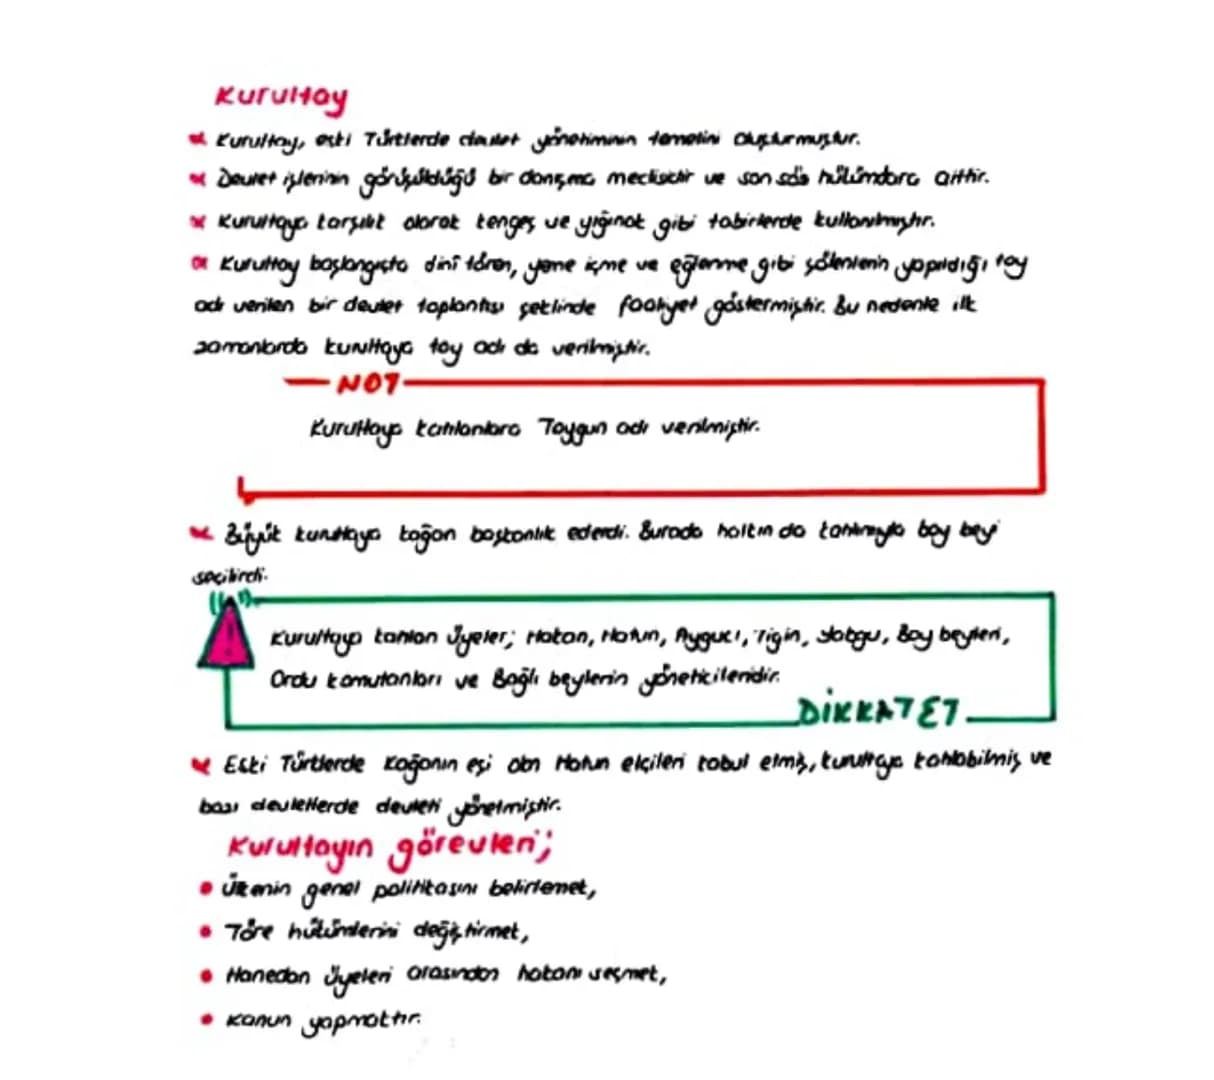 Kurultay
Kurultay, eski Türklerde devlet yönetiminin temelini oluşturmuştur.
Devlet işlerinin görüşüldüğü bir danışma meclisidir ve son söz hükümdara aittir.
Kurultaya karşılık olarak kengeş ve yığınak gibi tabirlerde kullanılmıştır.
Kurultay başlangıçta dinî tören, yeme içme ve eğlenme gibi şölenlerin yapıldığı toy
adı verilen bir devlet toplantısı şeklinde faaliyet göstermiştir. Bu nedenle ilk
zamanlarda kurultaya toy adı da verilmiştir.
NOT
Kurultaya katılanlara Toygun adı verilmiştir.
Büyük kurultaya kağan başkanlık ederdi. Burada halkın da katılımıyla boy beyi
seçilirdi.
Kurultaya katılan üyeler; Hakan, Hatun, Ayguci, Tigin, Yabgu, Boy beyleri,
Ordu komutanları ve Bağlı beylerin yöneticileridir.
DİKKAT ET
Eski Türklerde Kağanın eşi olan Hatun elçileri kabul etmiş, kurultaya katılabilmiş ve
bazı devletlerde devleti yönetmiştir.
Kurultayın görevleri;
Ülkenin genel politikasını belirlemek,
Töre hükümlerini değiştirmek,
Hanedan üyeleri arasından hakanı seçmek,
Kanun yapmaktır.